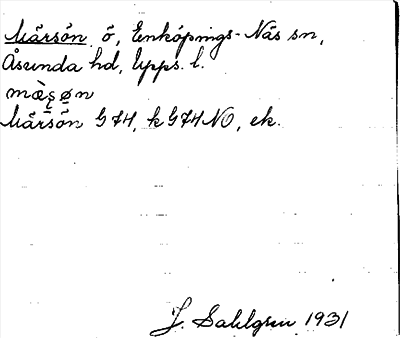 Mårsön ö, Enköpings-Näs sn,
Åsunda hd, Upps. l.
mæ̀ʂøn
Mårsön G 74, k G74NO, ek.
J. Sahlgren 1931